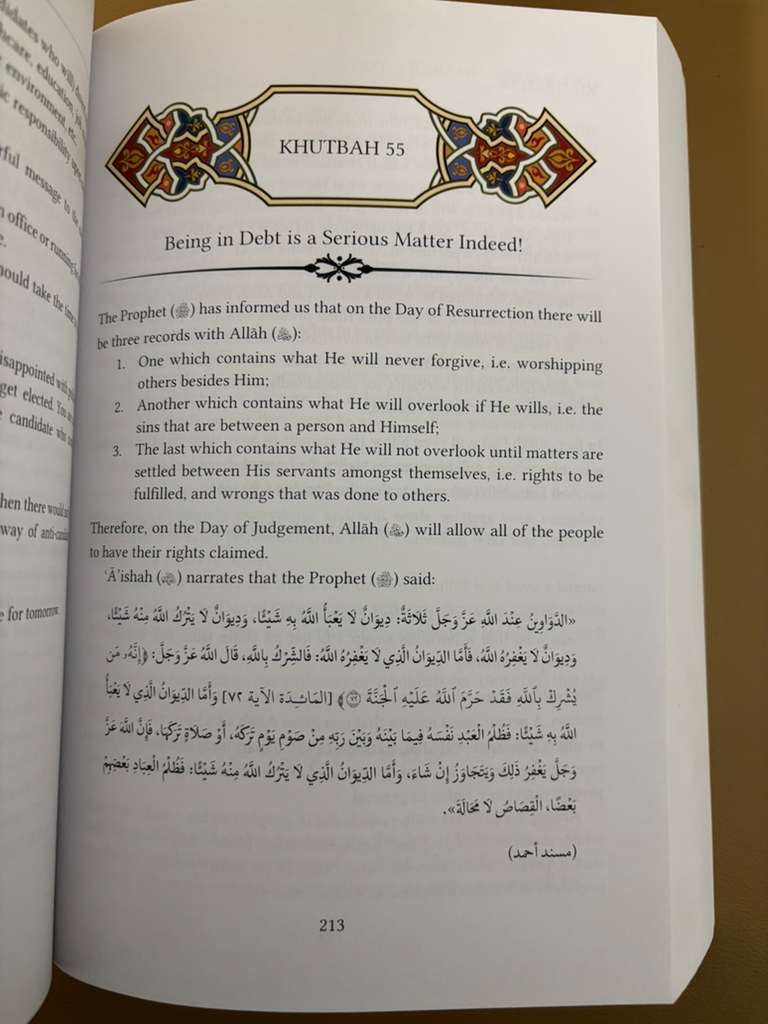 didates who will
hcare, education, job
environment, etc.
ic responsibility upon
rful message to the
n office or running
e.
hould take the time
isappointed with
get elected. You
e candidate who
hen there would
way of anti-
e for tomorrow.
KHUTBAH 55
Being in Debt is a Serious Matter Indeed!
The Prophet (ﷺ) has informed us that on the Day of Resurrection there will
be three records with Allāh (ﷻ):
1. One which contains what He will never forgive, i.e. worshipping
others besides Him;
2. Another which contains what He will overlook if He wills, i.e. the
sins that are between a person and Himself;
3. The last which contains what He will not overlook until matters are
settled between His servants amongst themselves, i.e. rights to be
fulfilled, and wrongs that was done to others.
Therefore, on the Day of Judgement, Allāh (ﷻ) will allow all of the people
to have their rights claimed.
ʿĀʾishah () narrates that the Prophet (ﷺ) said:
«الدَّوَاوِينُ عِنْدَ اللَّهِ عَزَّ وَجَلَّ ثَلَاثَةٌ: دِيوَانٌ لَا يَعْبَأُ اللَّهُ بِهِ شَيْئًا، وَدِيوَانٌ لَا يَتْرُكُ اللَّهُ مِنْهُ شَيْئًا،
وَدِيوَانٌ لَا يَغْفِرُهُ اللَّهُ، فَأَمَّا الدِّيوَانُ الَّذِي لَا يَغْفِرُهُ اللَّهُ: فَالشِّرْكُ بِاللَّهِ، قَالَ اللَّهُ عَزَّ وَجَلَّ: ﴿إِنَّهُۥ مَن
يُشْرِكْ بِٱللَّهِ فَقَدْ حَرَّمَ ٱللَّهُ عَلَيْهِ ٱلْجَنَّةَ ۝٧٢﴾ [المَائِدَة الآية ٧٢] وَأَمَّا الدِّيوَانُ الَّذِي لَا يَعْبَأُ
اللَّهُ بِهِ شَيْئًا: فَظُلْمُ الْعَبْدِ نَفْسَهُ فِيمَا بَيْنَهُ وَبَيْنَ رَبِّهِ مِنْ صَوْمِ يَوْمٍ تَرَكَهُ، أَوْ صَلَاةٍ تَرَكَهَا، فَإِنَّ اللَّهَ عَزَّ
وَجَلَّ يَغْفِرُ ذَلِكَ وَيَتَجَاوَزُ إِنْ شَاءَ، وَأَمَّا الدِّيوَانُ الَّذِي لَا يَتْرُكُ اللَّهُ مِنْهُ شَيْئًا: فَظُلْمُ الْعِبَادِ بَعْضِهِمْ
بَعْضًا، الْقِصَاصُ لَا مَحَالَةَ».
(مسند أحمد)
213